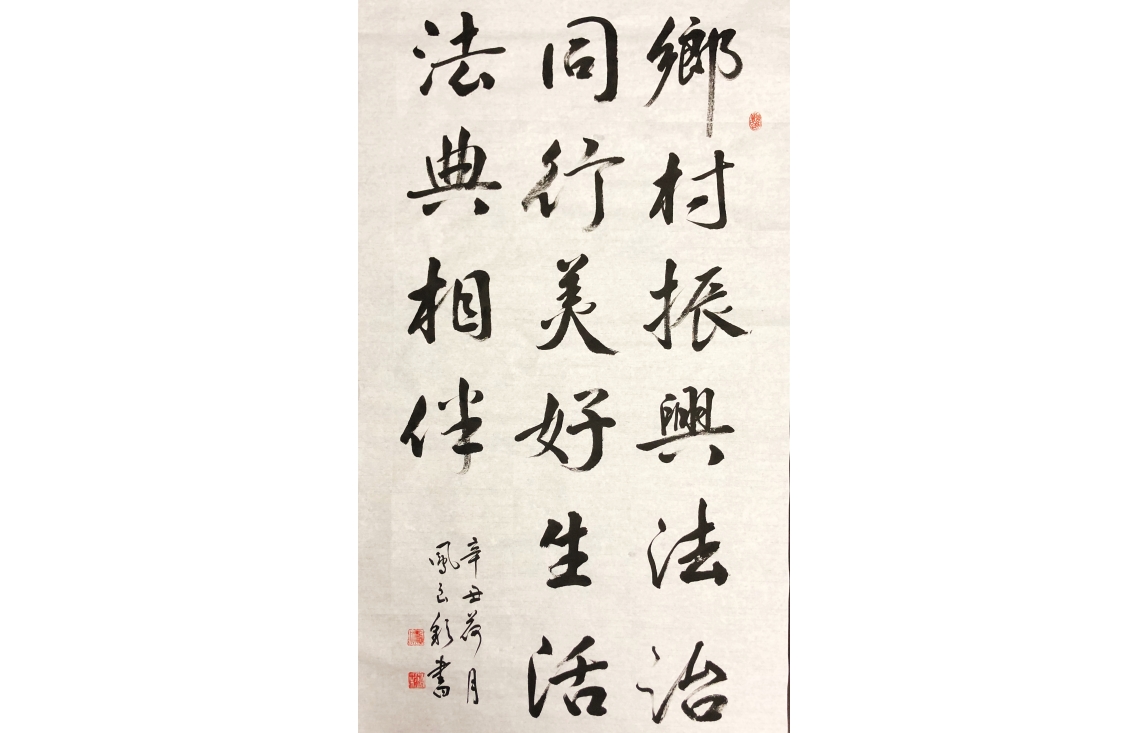 鄉村振興法治
同行美好生活
法典相伴
辛丑荷月
鳳云彩書